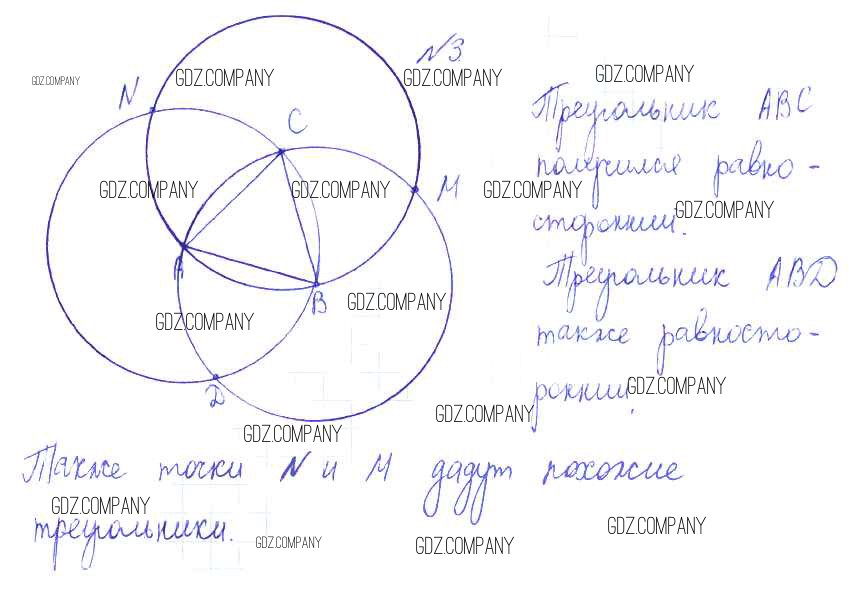 N3.
GDZ.COMPANY GDZ.COMPANY GDZ.COMPANY GDZ.COMPANY
N
C
Треугольник ABC
получился равно-
GDZ.COMPANY GDZ.COMPANY M GDZ.COMPANY
GDZ.COMPANY
сторонний.
A
Треугольник ABD
B GDZ.COMPANY
GDZ.COMPANY
также равносто-
D
GDZ.COMPANY
ронний.
GDZ.COMPANY
GDZ.COMPANY
Также точки N и M дадут похожие
GDZ.COMPANY
треугольники.
GDZ.COMPANY GDZ.COMPANY GDZ.COMPANY